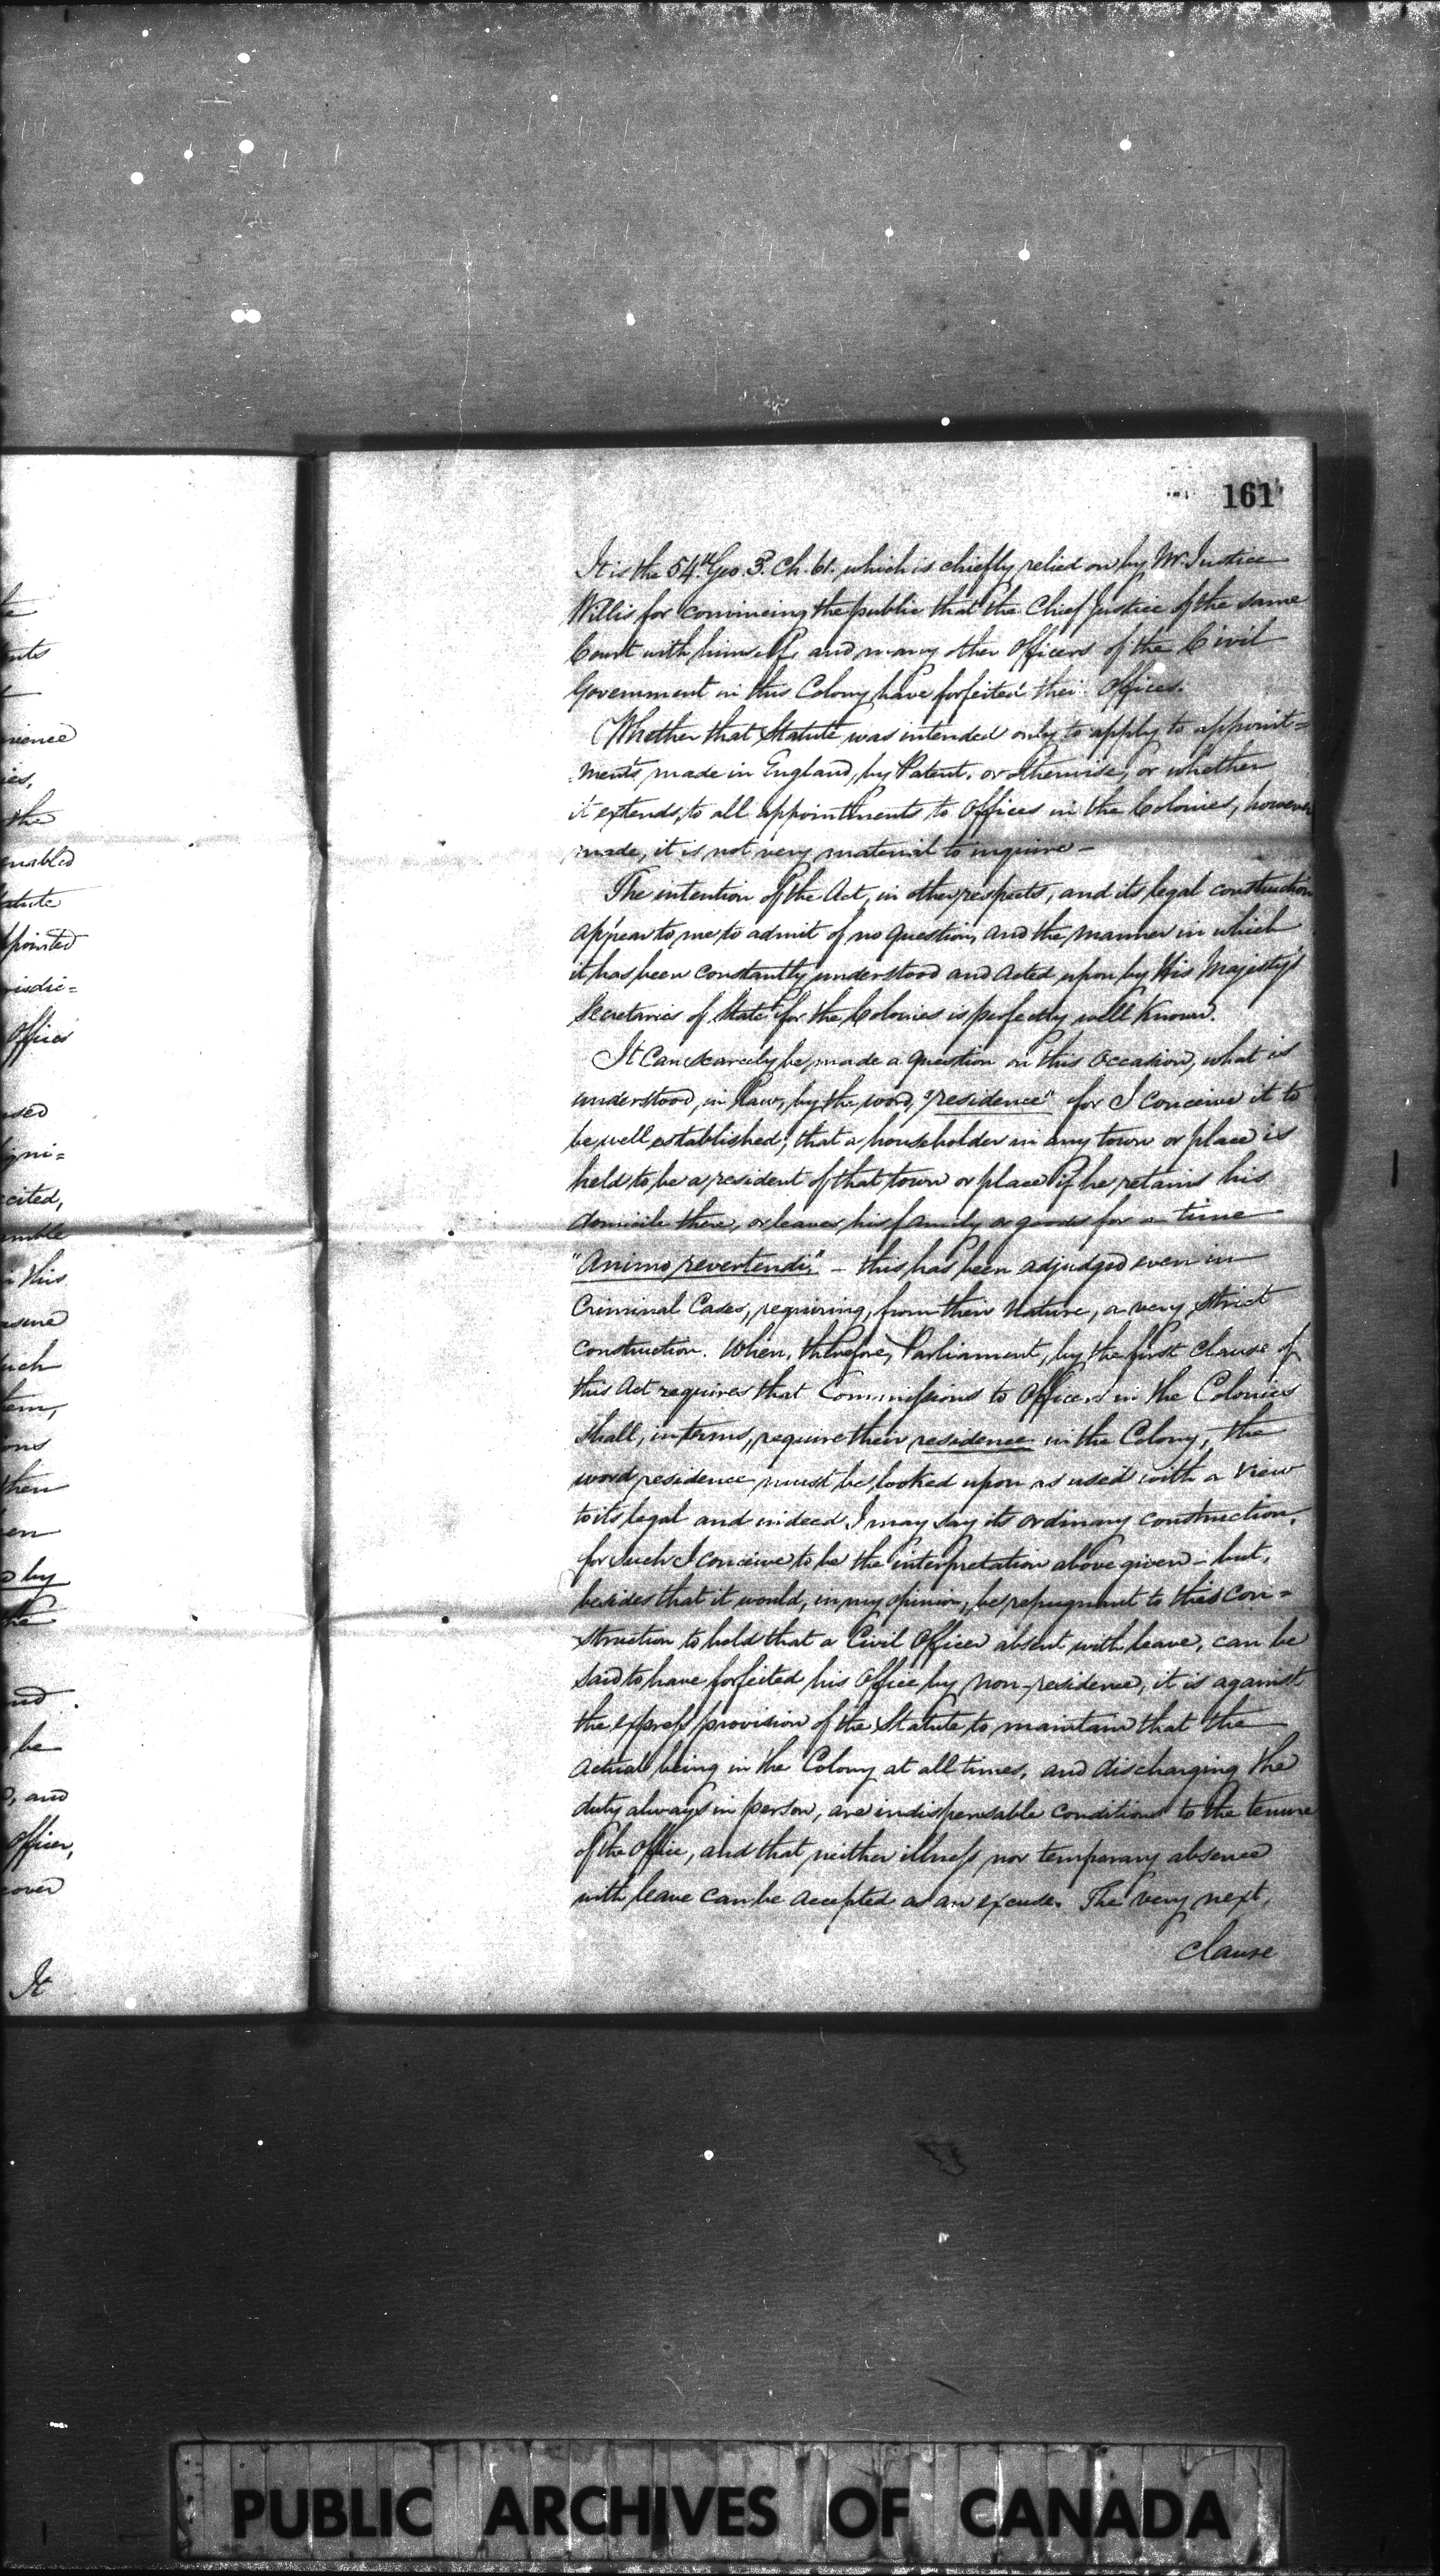 te
ents
t
nience
ies,
the
enabled
tatute
ppointed
risdic=
Offices
used
igni=
cited,
emble
in this
asure
such
tem,
ons
then
en
by
the
and
be
and
Officer,
cover
It
161
It is the 54th. Geo. 3d. Ch. 61. which is chiefly relied on by Mr. Justice
Willis for convincing the public that the Chief Justice of the same
Court with himself, and many other Officers of the Civil
Government in this Colony have forfeited their Offices.
Whether that Statute was intended only to apply to appoint=
ments made in England, by Patent, or otherwise, or whether
it extends, to all appointments to Offices in the Colonies, however
made, it is not very material to inquire -
The intention of the Act, in other respects, and its legal construction
appear to me to admit of no question, and the manner in which
it has been constantly understood and acted upon by His Majesty's
Secretaries of State for the Colonies is perfectly well known.
It can scarcely be made a question on this occasion, what is
understood, in Law, by the word, "residence" for I conceive it to
be well established, that a householder in any town or place is
held to be a resident of that town or place if he retains his
domicile there, or leaves his family or goods for a time
"Animo revertendi," - this has been adjudged even in
Criminal Cases, requiring, from their Nature, a very strict
construction. When, therefore, Parliament, by the first clause of
this Act requires that Commissions to Officers in the Colonies
shall, in terms, require their residence in the Colony, the
word residence must be looked upon as used with a view
to its legal and indeed I may say its ordinary construction,
for such I conceive to be the interpretation above given - but,
besides that it would, in my opinion, be repugnant to this con=
struction to hold that a Civil Officer absent with leave, can be
said to have forfeited his Office by non-residence, it is against
the express provision of the Statute to maintain that the
actual being in the Colony at all times, and discharging the
duty always in person, are indispensable conditions to the tenure
of the Office, and that neither illness nor temporary absence
with leave can be accepted as an excuse. The very next,
clause
PUBLIC ARCHIVES OF CANADA